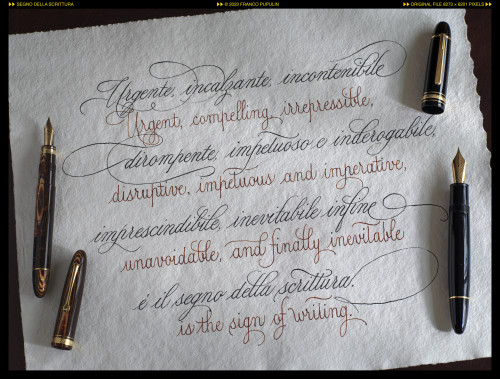 ▸▸ SEGNO DELLA SCRITTURA
▸▸ © 2023 FRANCO PUPULIN
▸▸ ORIGINAL FILE 8273 × 6201 PIXELS ▸▸
Urgente, incalzante, incontenibile
Urgent, compelling, irrepressible,
dirompente, impetuoso e inderogabile,
disruptive, impetuous and imperative,
imprescindibile, inevitabile infine
unavoidable, and finally inevitable
è il segno della scrittura.
is the sign of writing.